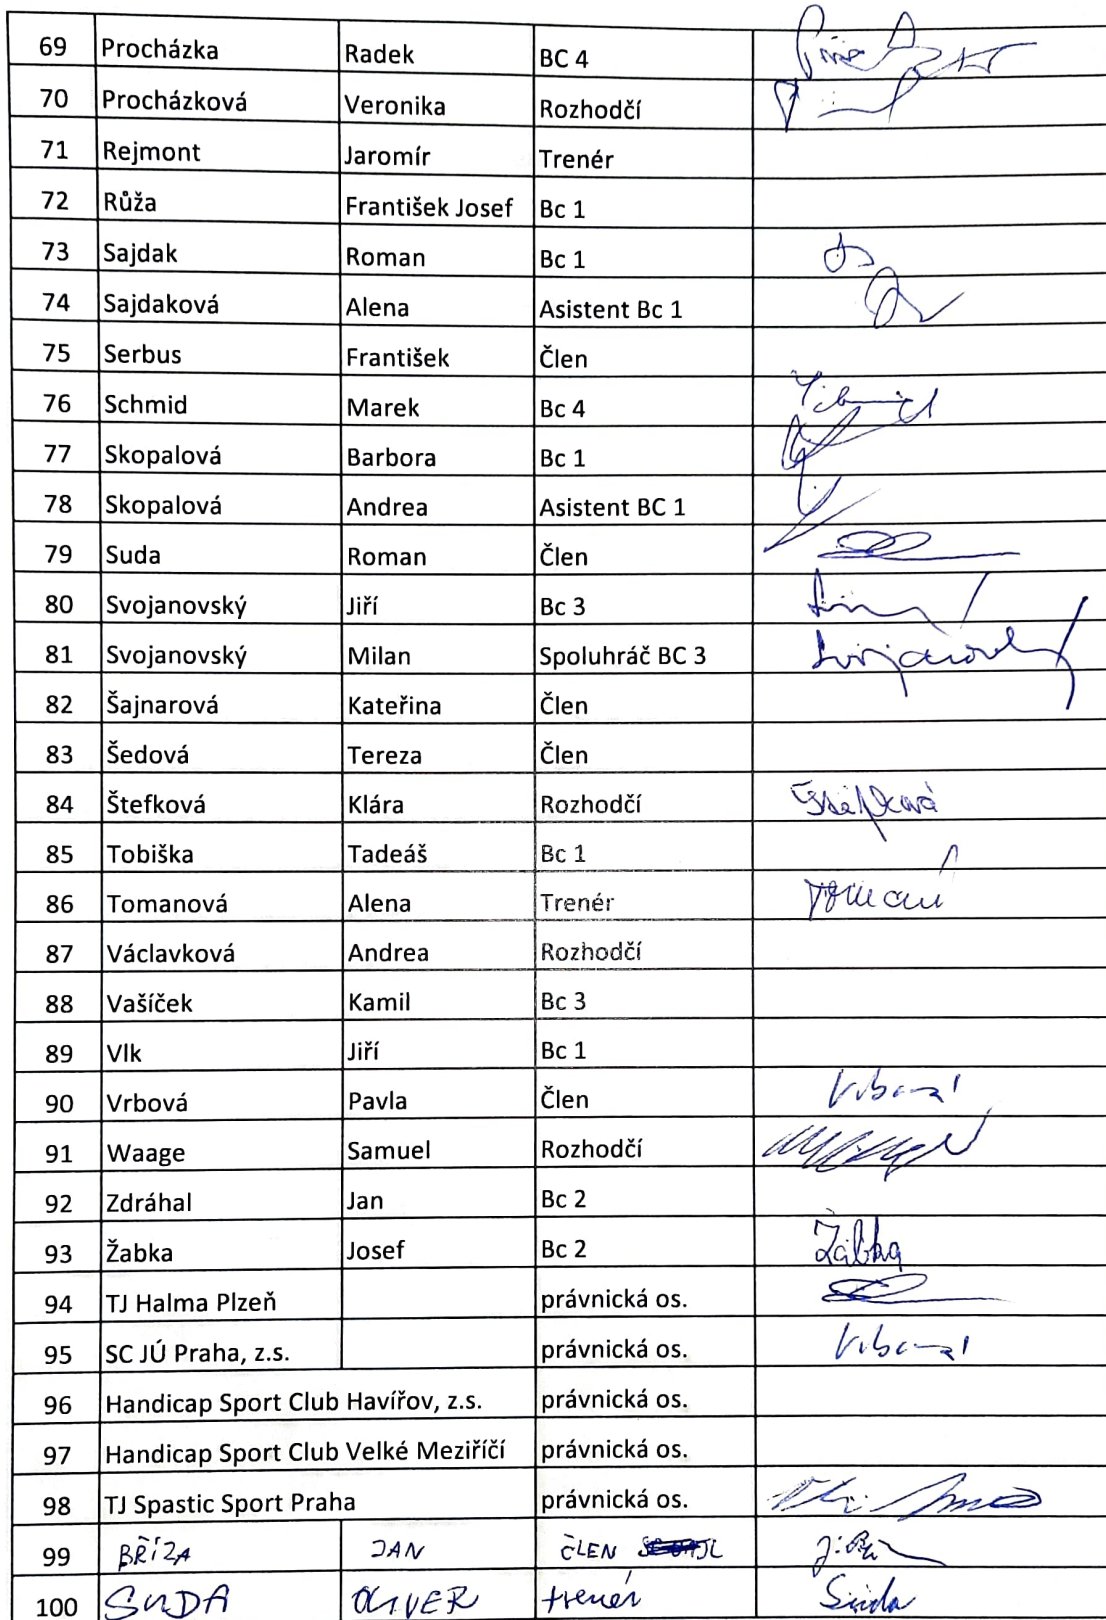 69 Procházka Radek BC 4
70 Procházková Veronika Rozhodčí
71 Rejmont Jaromír Trenér
72 Růža František Josef Bc 1
73 Sajdak Roman Bc 1
74 Sajdaková Alena Asistent Bc 1
75 Serbus František Člen
76 Schmid Marek Bc 4
77 Skopalová Barbora Bc 1
78 Skopalová Andrea Asistent BC 1
79 Suda Roman Člen
80 Svojanovský Jiří Bc 3
81 Svojanovský Milan Spoluhráč BC 3
82 Šajnarová Kateřina Člen
83 Šedová Tereza Člen
84 Štefková Klára Rozhodčí Štefková
85 Tobiška Tadeáš Bc 1
86 Tomanová Alena Trenér
87 Václavková Andrea Rozhodčí
88 Vašíček Kamil Bc 3
89 Vlk Jiří Bc 1
90 Vrbová Pavla Člen
91 Waage Samuel Rozhodčí
92 Zdráhal Jan Bc 2
93 Žabka Josef Bc 2 Žabka
94 TJ Halma Plzeň právnická os.
95 SC JÚ Praha, z.s. právnická os.
96 Handicap Sport Club Havířov, z.s. právnická os.
97 Handicap Sport Club Velké Meziříčí právnická os.
98 TJ Spastic Sport Praha právnická os.
99 BŘÍZA JAN ČLEN
100 SUDA OLIVER trenér Suda